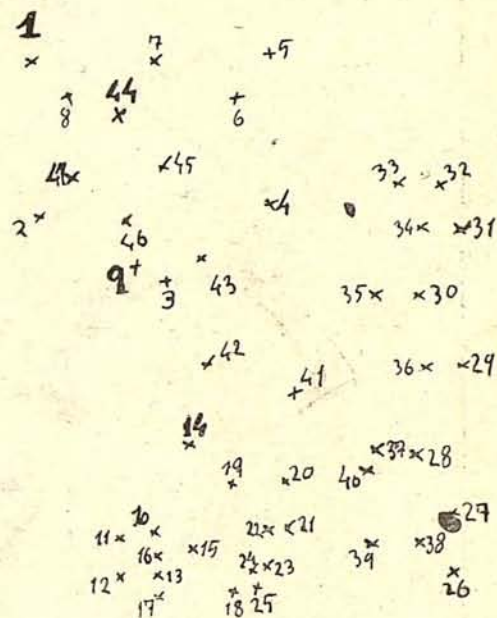 1
7
5
8
44
6
45
33
32
2
46
4
34
31
9
3
43
35
30
42
41
36
29
14
19
20
40
37
28
10
11
22
21
27
16
15
24
23
39
38
12
13
17
18
25
26